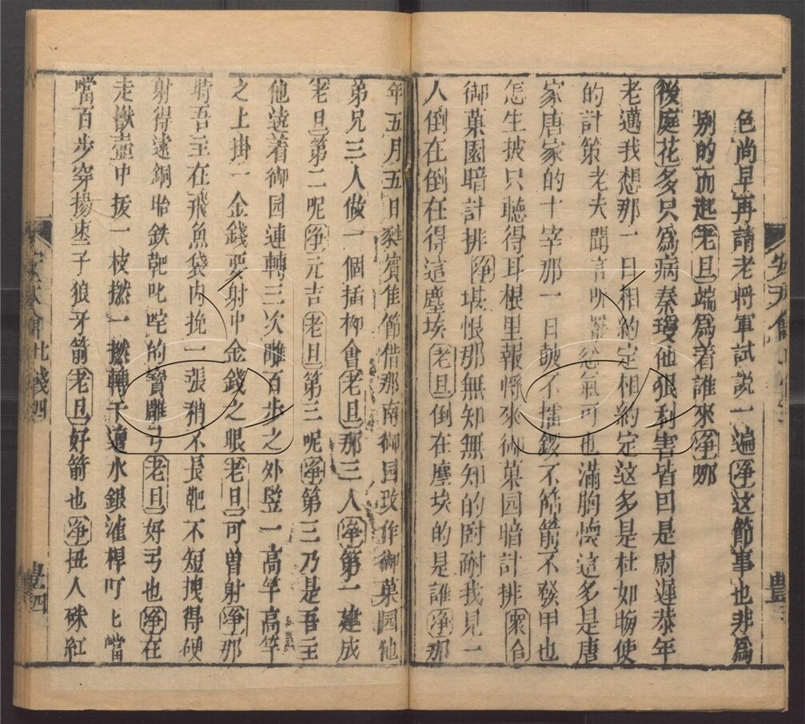 色尚早再請老將軍試説一遍淨这節事也非爲
别的而起老旦端爲着誰來淨那
後庭花多只爲病秦瓊他狠利害皆因是尉遲恭年
老邁我想那一日相約定相約定这多是杜如晦使
的計策老夫聞言怒氣可也滿胸懷這多是唐
家唐家的十宰那一日皷不擂鑼不篩箭不發甲也
怎生披只聽得耳根里報將來御菓园暗計排衆合
御菓園暗計排淨堪恨那無知無知的尉耐我見一
人倒在倒在得這塵埃老旦倒在塵埃的是誰淨那
年五月五日㽔賓佳節借那南御园改作御菓园他
弟兄三人做一個插柳會老旦那三人淨第一建成
老旦第二呢淨元吉老旦第三呢淨第三乃是吾主
他遶着御园連轉三次離百步之外竪一高竿高竿
之上掛一金錢要射中金錢之眼老旦可曽射淨那
時吾主在飛魚袋内挽一張稍不長靶不短拽得硬
射得遠銅胎鉄靶叱咤的寳雕弓老旦好弓也淨在
走獸壺中拔一枝撚一撚轉千遭水銀灌桿叮七噹
噹百步穿揚枣子狼牙箭老旦好箭也淨扭人硃紅
豊三
豊四